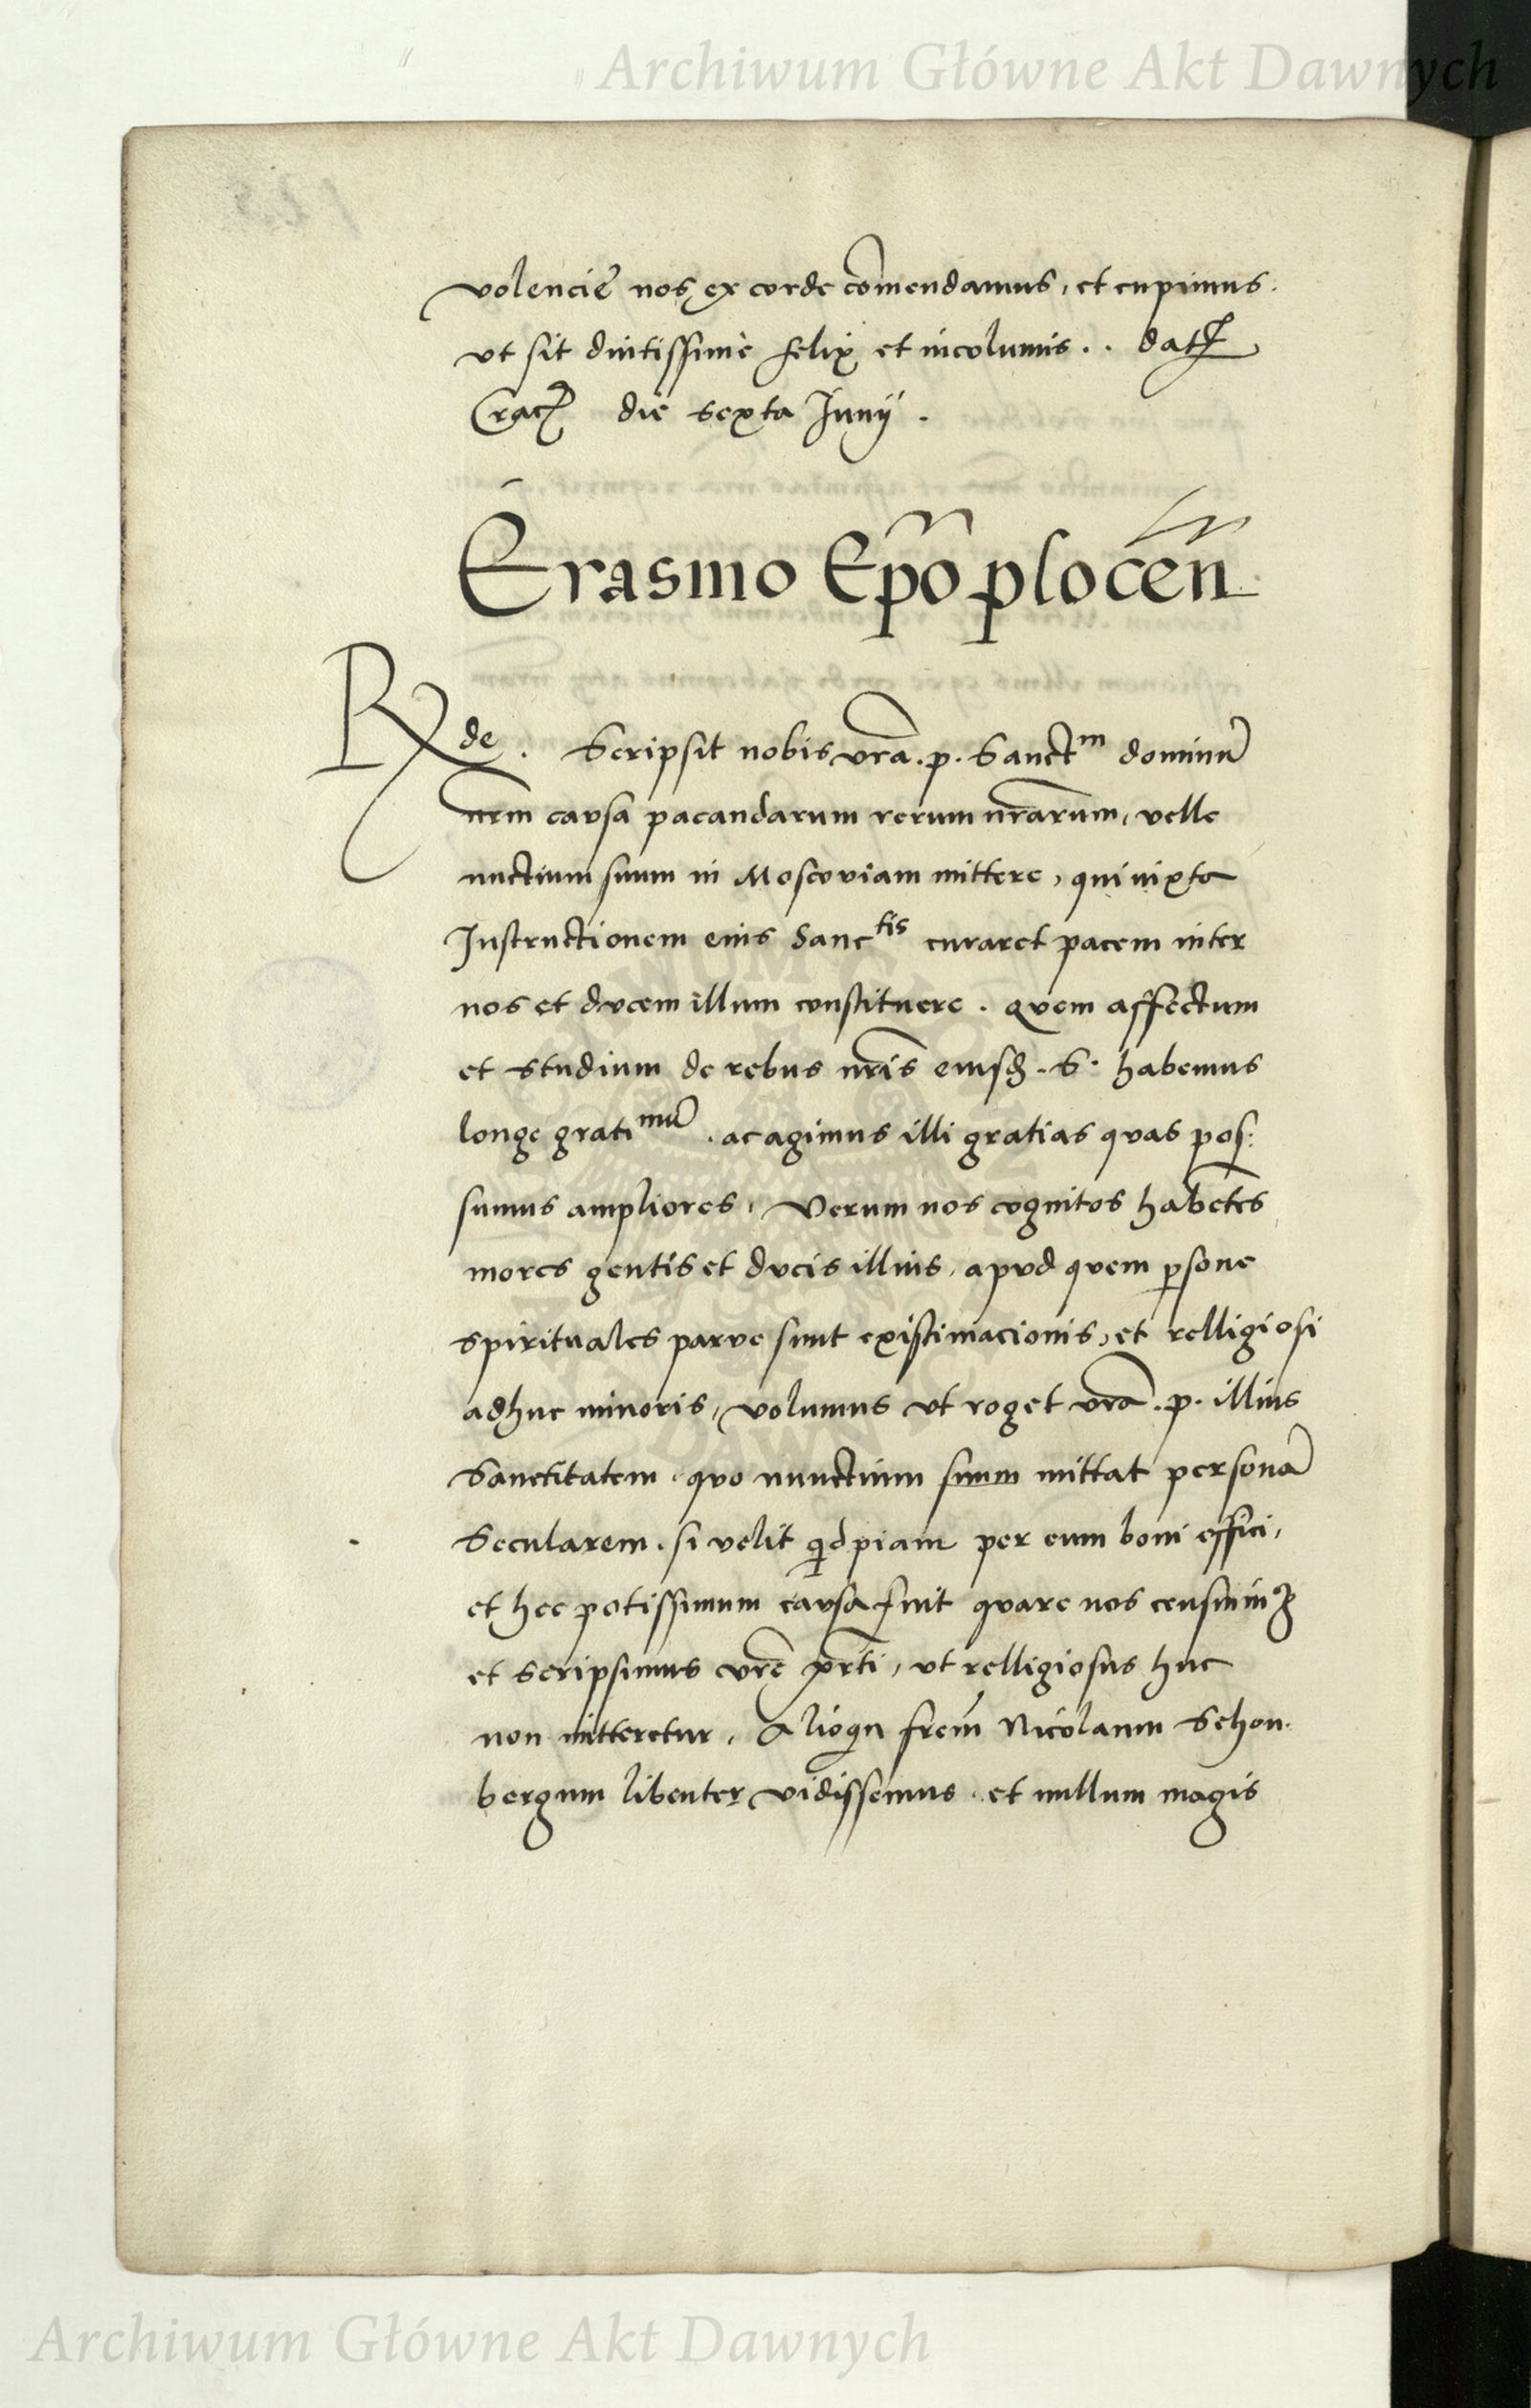 Archiwum Główne Akt Dawnych
volencie nos ex corde com̄endamus, et cupimus.
vt sit diutissime felix et incolumis. . dat
Crac die sexta Junÿ .
Erasmo Ep̄o plocen̄
Rde . Scripsit nobis vr̄a . p . Sanctm dominū
nr̄m cavsa pacandarum rerum nr̄arum, velle
nuctium suum in Moscoviam mittere, qui iuxta
Instructionem eius Sanctis curaret pacem inter
nos et dvcem illum constituere . qvem affectum
et studium de rebus nr̄is eiusd . S . habemus
longe gratimū . ac agimus illi gratias qvas pos:
sumus ampliores, Verum nos cognitos habētes
mores gentis et dvcis illius, apvd qvem psone
spirituales parve sunt existimacionis, et relligiosi
adhuc minoris, volumus vt roget vr̄a . p . illius
Sanctitatem . qvo nunctium suum mittat personā
Secularem . si velit qidpiam per eum boni effici,
et hec potissimum cavsa fuit qvare nos censuim9
et scripsimus vr̄e pr̄ti, vt relligiosus huc
non mitteretur, Alioqn frem̄ Nicolaum Schon.
bergum libenter vidissemus . et nullum magis
Archiwum Główne Akt Dawnych